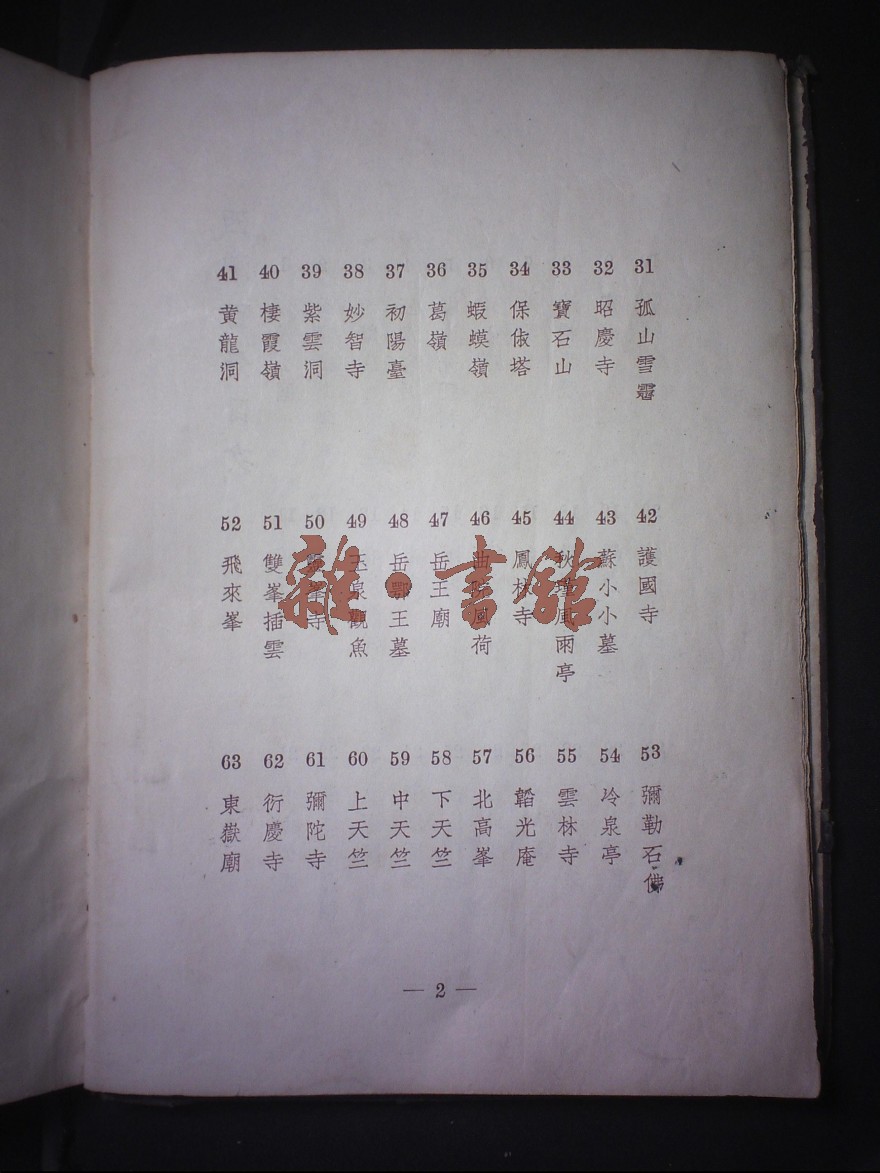 31 孤山雪霽
32 昭慶寺
33 寶石山
34 保俶塔
35 蝦蟆嶺
36 葛嶺
37 初陽臺
38 妙智寺
39 紫雲洞
40 棲霞嶺
41 黃龍洞
42 護國寺
43 蘇小小墓
44 秋瑾風雨亭
45 鳳林寺
46 曲院風荷
47 岳王廟
48 岳鄂王墓
49 玉泉觀魚
50 寺
51 雙峯插雲
52 飛來峯
53 彌勒石佛
54 冷泉亭
55 雲林寺
56 韜光庵
57 北高峯
58 下天竺
59 中天竺
60 上天竺
61 彌陀寺
62 衍慶寺
63 東嶽廟
— 2 —
雜·書館